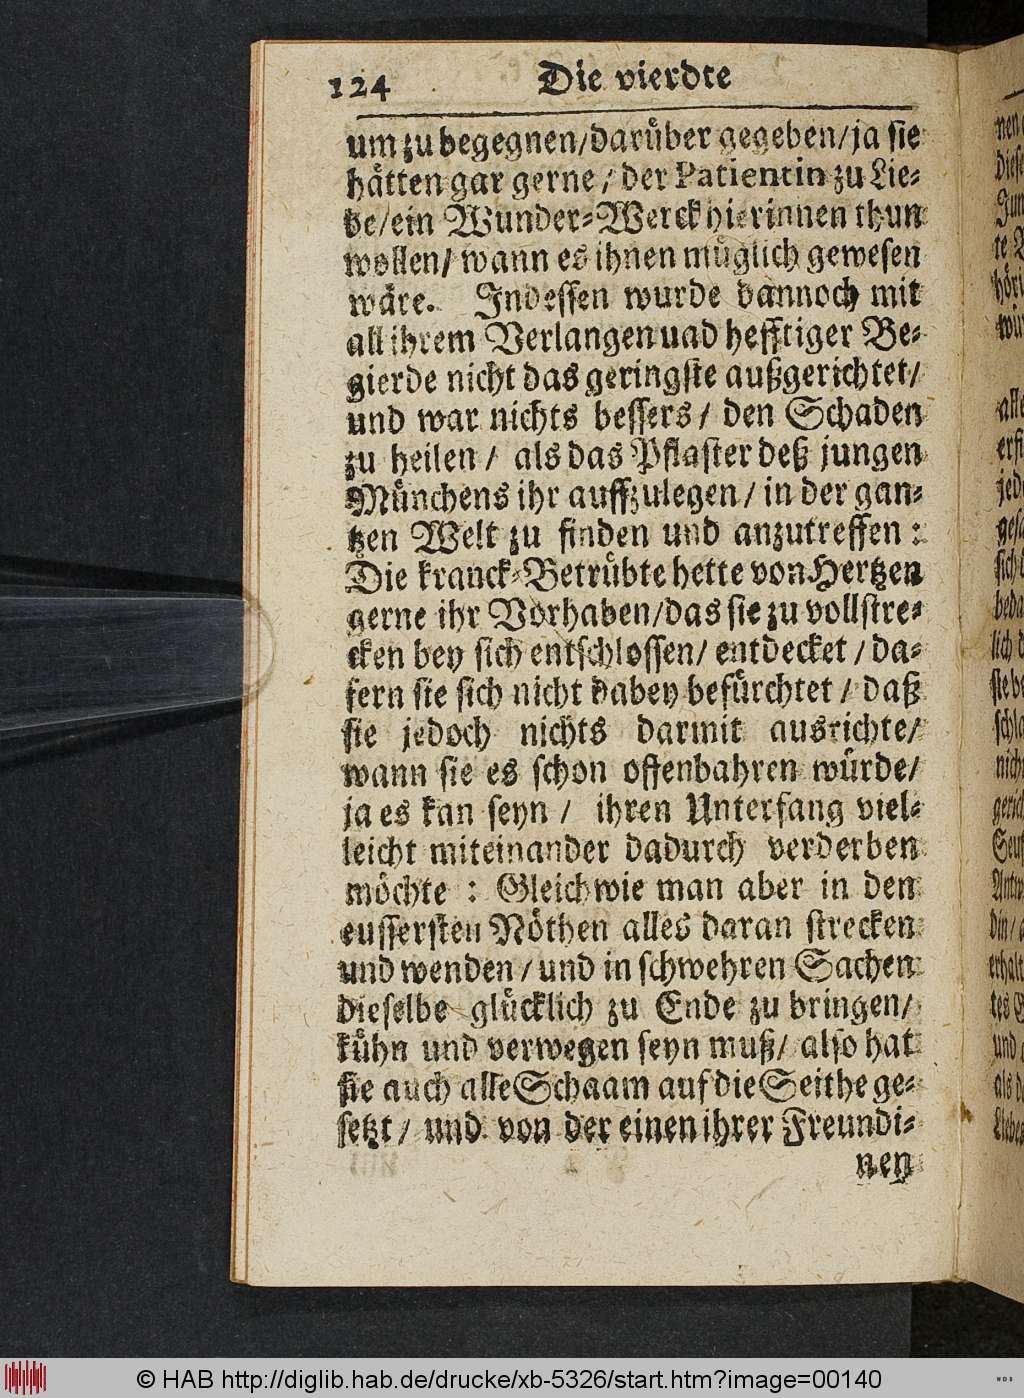 124 Die vierdte
um zu begegnen/darüber gegeben/ja sie
hätten gar gerne / der Patientin zu Lie-
be/ein Wunder-Werck hierinnen thun
wollen/ wann es ihnen müglich gewesen
wäre. Indessen wurde dannoch mit
all ihrem Verlangen uad hefftiger Be-
gierde nicht das geringste außgerichtet/
und war nichts bessers / den Schaden
zu heilen / als das Pflaster deß jungen
Münchens ihr auffzulegen / in der gan-
tzen Welt zu finden und anzutreffen:
Die kranck-Betrübte hette von Hertzen
gerne ihr Vorhaben/das sie zu vollstre-
cken bey sich entschlossen/ entdecket / da-
fern sie sich nicht dabey befürchtet / daß
sie jedoch nichts darmit ausrichte/
wann sie es schon offenbahren würde/
ja es kan seyn / ihren Unterfang viel-
leicht miteinander dadurch verderben
möchte : Gleichwie man aber in den
eussersten Nöthen alles daran strecken
und wenden / und in schwehren Sachen
dieselbe glücklich zu Ende zu bringen/
kühn und verwegen seyn muß/ also hat
sie auch alle Schaam auf die Seithe ge-
setzt / und von der einen ihrer Freundi-
nen
© HAB http://diglib.hab.de/drucke/xb-5326/start.htm?image=00140